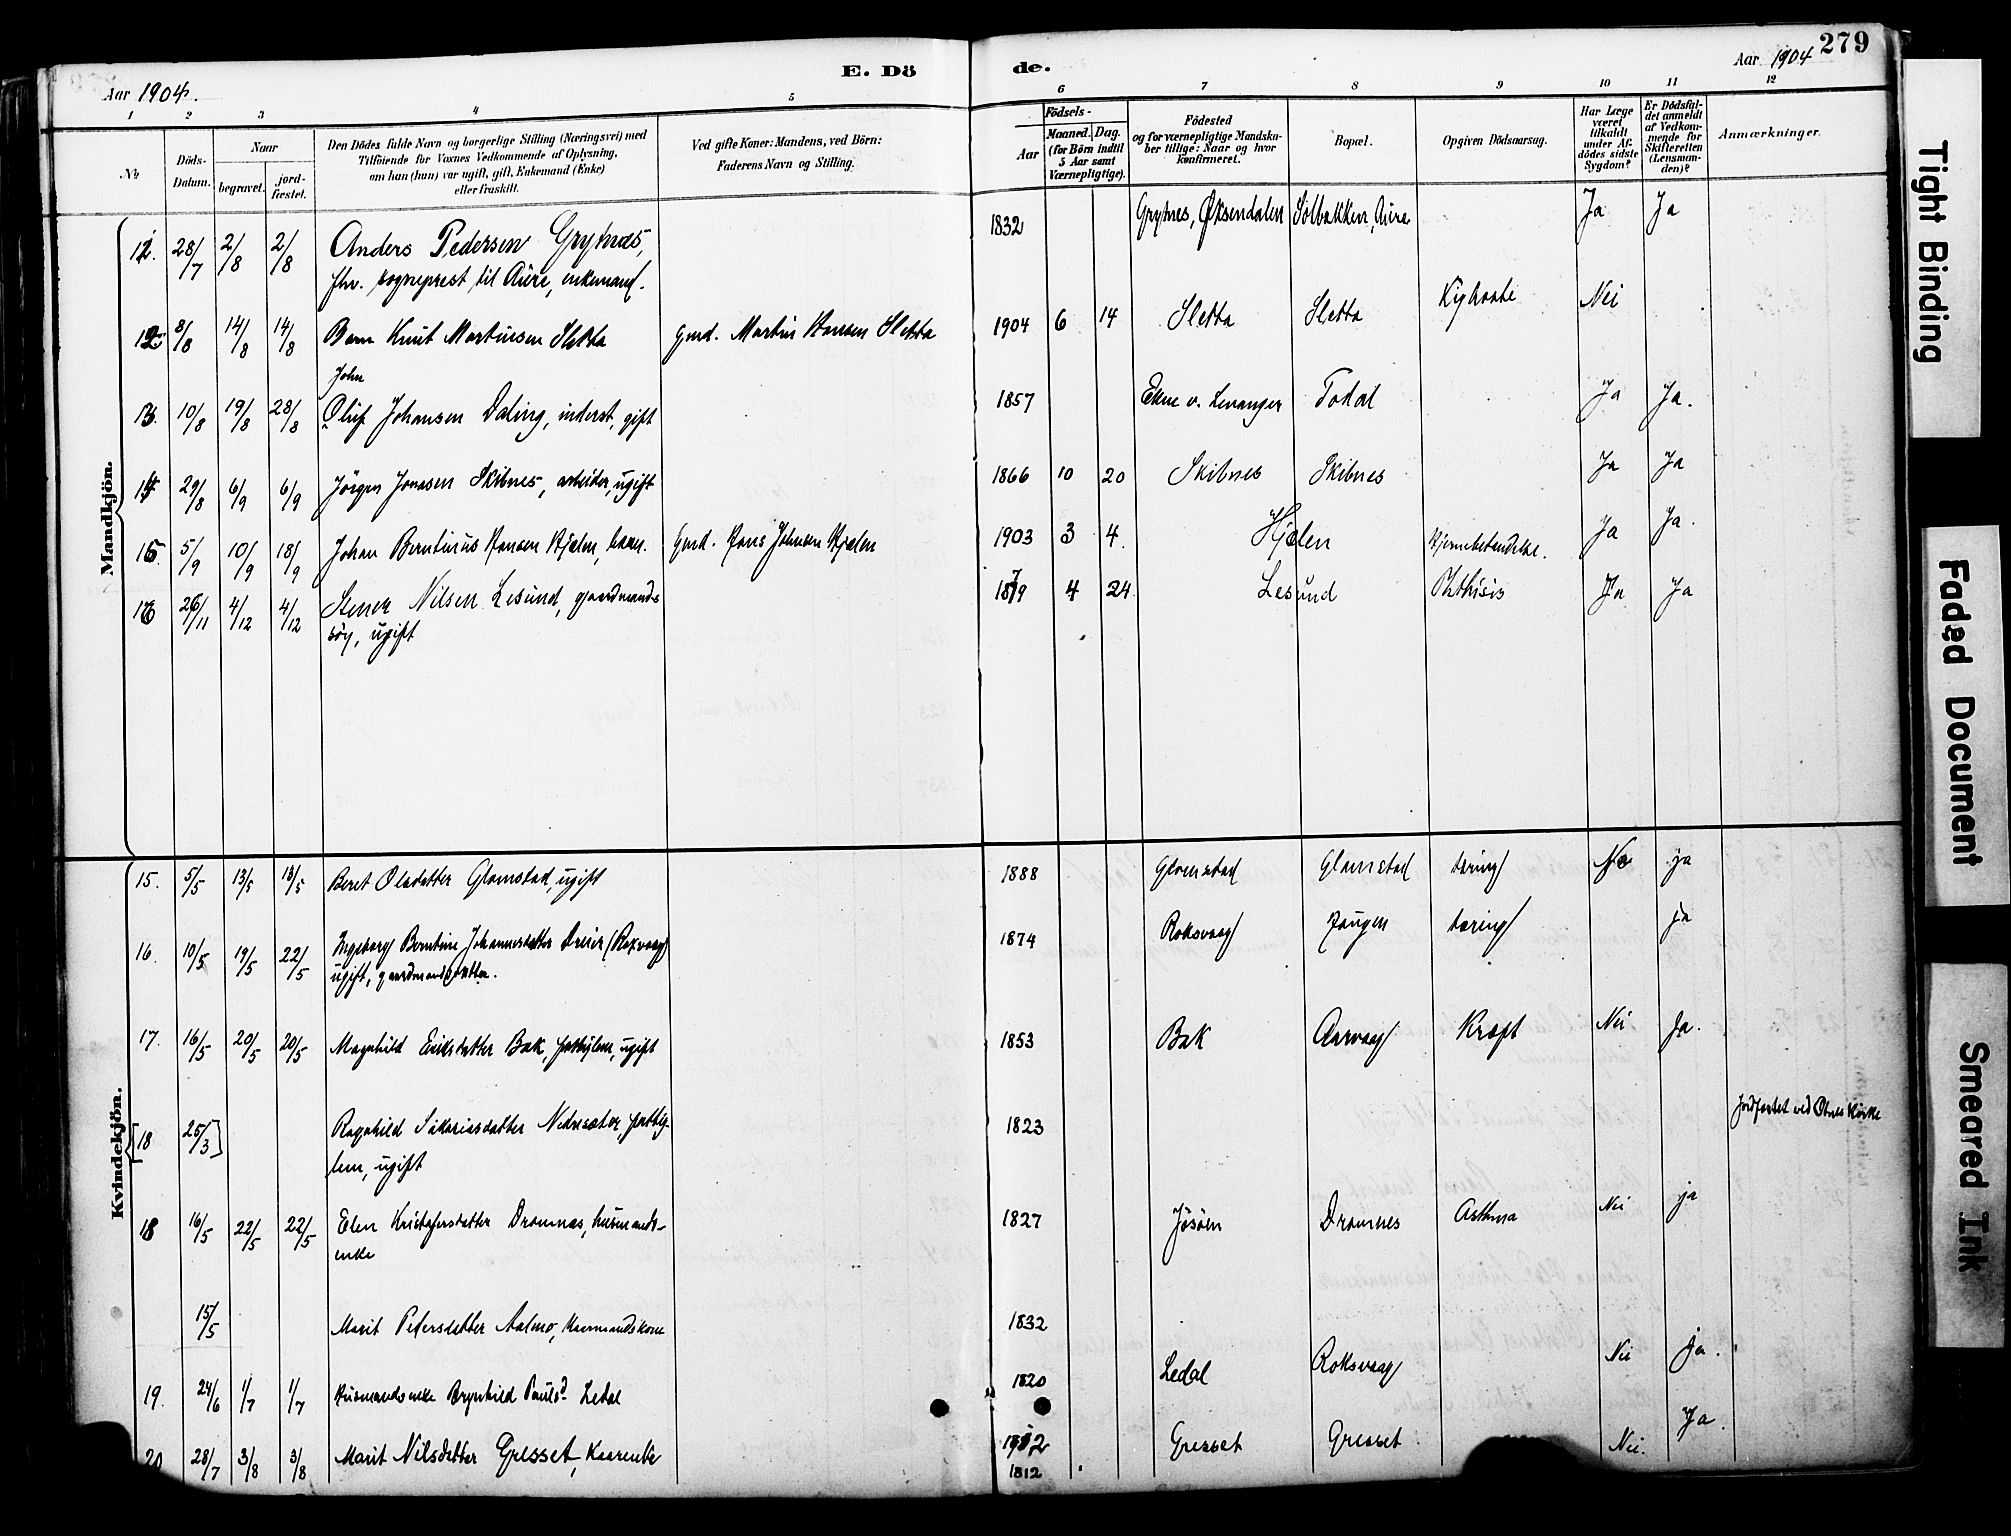 E. Dö de.
279
Aar 1904.
Aar 1904
1 2 3 4 5 6 7 8 9 10 11 12
No
Döds-Datum.
Naar
begravet.
jord-fæstet.
Den Dödes fulde Navn og borgerlige Stilling (Næringsvei) med
Tilföiende for Voxnes Vedkommende af Oplysning,
om han (hun) var ugift, gift, Enkemand (Enke)
eller fraskilt.
Ved gifte Koner: Mandens, ved Börn:
Faderens Navn og Stilling.
Födsels-
Aar
Maaned. Dag.
(for Börn indtil
5 Aar samt
Værnepligtige).
Födested
og for værnepligtige Mandska-
ber tillige: Naar og hvor
konfirmeret.
Bopæl.
Opgiven Dödsaarsag.
Har Læge
været
tilkaldt
under Af-
dödes sidste
Sygdom?
Er Dödsfal-
det anmeldt
af Vedkom-
mende for
Skifteretten
(Lensman-
den)?
Anmærkninger.
Mandkjön.
28/7 2/8 2/8 Anders Pedersen Grytnes, 1832 Grytnes, Öksendalen Solbakken, Aure Ja Ja
fhv. sogneprest til Aure, enkemand.
12. 8/8 14/8 14/8 Barn Knut Martinsen Sletta Gmd. Martin Hansen Sletta 1904 6 14 Sletta Sletta Kighoste Nei
John
13. 10/8 19/8 28/8 Oluf Johansen Daling, inderst, gift 1857 Ekne v. Levanger Todal Ja Ja.
14 29/8 6/9 6/9 Jörgen Jonasen Skibnes, arbeider, ugift 1866 10 20 Skibnes Skibnes Ja Ja
15. 5/9 10/9 18/9 Johan Berntinus Hansen Hjelen, barn. Gmd. Hans Johnsen Hjelen 1903 3 4. Hjelen Hjernebetendelse. Ja Ja.
16 26/11 4/12 4/12 Stener Nilsen Lesund, gaardmands 1879 4 24 Lesund Phthisis Ja Ja
søn, ugift
Kvindekjön.
15. 5/5 13/5 13/5 Beret Olsdatter Glomstad, ugift 1888 Glomstad Glomstad tæring ja
16. 10/5 19/5 22/5 Ingeborg Berntine Johannesdatter Dreier (Roxvaag) 1874 Roksvaag Haugen tæring ja
ugift, gaardmandsdatter.
17. 16/5 20/5 20/5 Magnhild Eriksdatter Bak, fattiglem, ugift 1853 Bak Aarvaag Kræft Nei Ja.
[18 25/3] Ragnhild Sakariasdatter Nedresæter, fattig- 1823 Jordfæstet ved Otnes Kirke
lem, ugift
18 16/5 22/5 22/5 Elen Kristofersdatter Dromnes, husmands- 1827 Jösöen Dromnes Asthma Nei ja
enke
15/5 Marit Pedersdatter Aalmo, kaarmandskone 1832
19. 24/6 1/7 1/7 Husmandsenke Brynhild Paulsd. Ledal 1820 Ledal Roksvaag Nei ja.
20 28/7 3/8 3/8 Marit Nilsdatter Gresset, kaarenke 1812 Gresset Gresset Nei. Ja
1812
Tight Binding
Faded Document
Smeared Ink